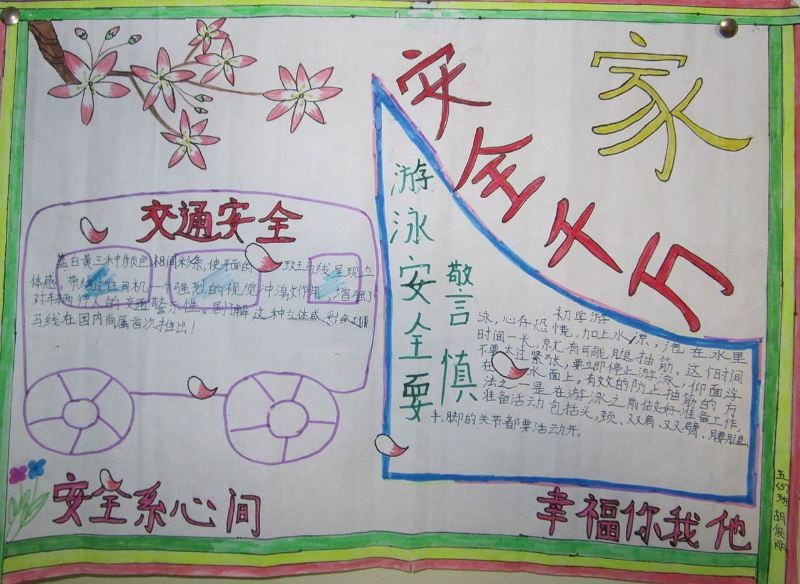 安全千万家
交通安全
蓝白黄三种颜色相间彩条,使平面的斑马线呈现立
体感,带给过往司机一个强烈的视觉冲激作用,增强了
对车辆行人的交通警示性。据了解,这种立体感彩色斑
马线在国内尚属首次推出!
游泳安全要
敬言慎
初学游
泳,心存恐慌,加上水凉,泡在水里
时间一长,就有可能腿抽筋。这个时间
不要太过紧张,要立即停上游泳,仰面浮
在水面上。有效的防止抽筋的方
法之一是在游泳之前做好准备工作,
准备活动包括头,颈、双肩、双臂、腰腿、
手、脚的关节都要活动开。
安全系心间
幸福你我他
五(5)班 胡俊